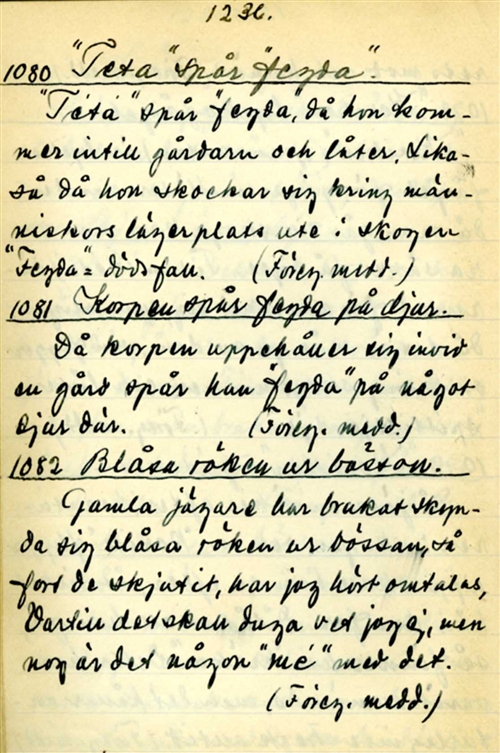 1236.
1080 "Teta" spår "fegda".
"Tétá" spår "fegda", då hon kom-
mer intill gårdarn och låter. Lika-
så då hon skockar sig kring män-
niskors lägerplats ute i skogen
"Fegda" = dödsfall. (Föreg. medd.)
1081 Korpen spår fegda på djur.
Då korpen uppehåller sig invid
en gård spår han "fegda" på något
djur där. (Föreg. medd.)
1082 Blåsa röken ur bössan.
Gamla jägare har brukat skyn-
da sig blåsa röken ur bössan, så
fort de skjutit, har jag hört omtalas,
Vartill det skall duga vet jag ej, men
nog är det någon "mé" med det.
(Föreg. medd.)